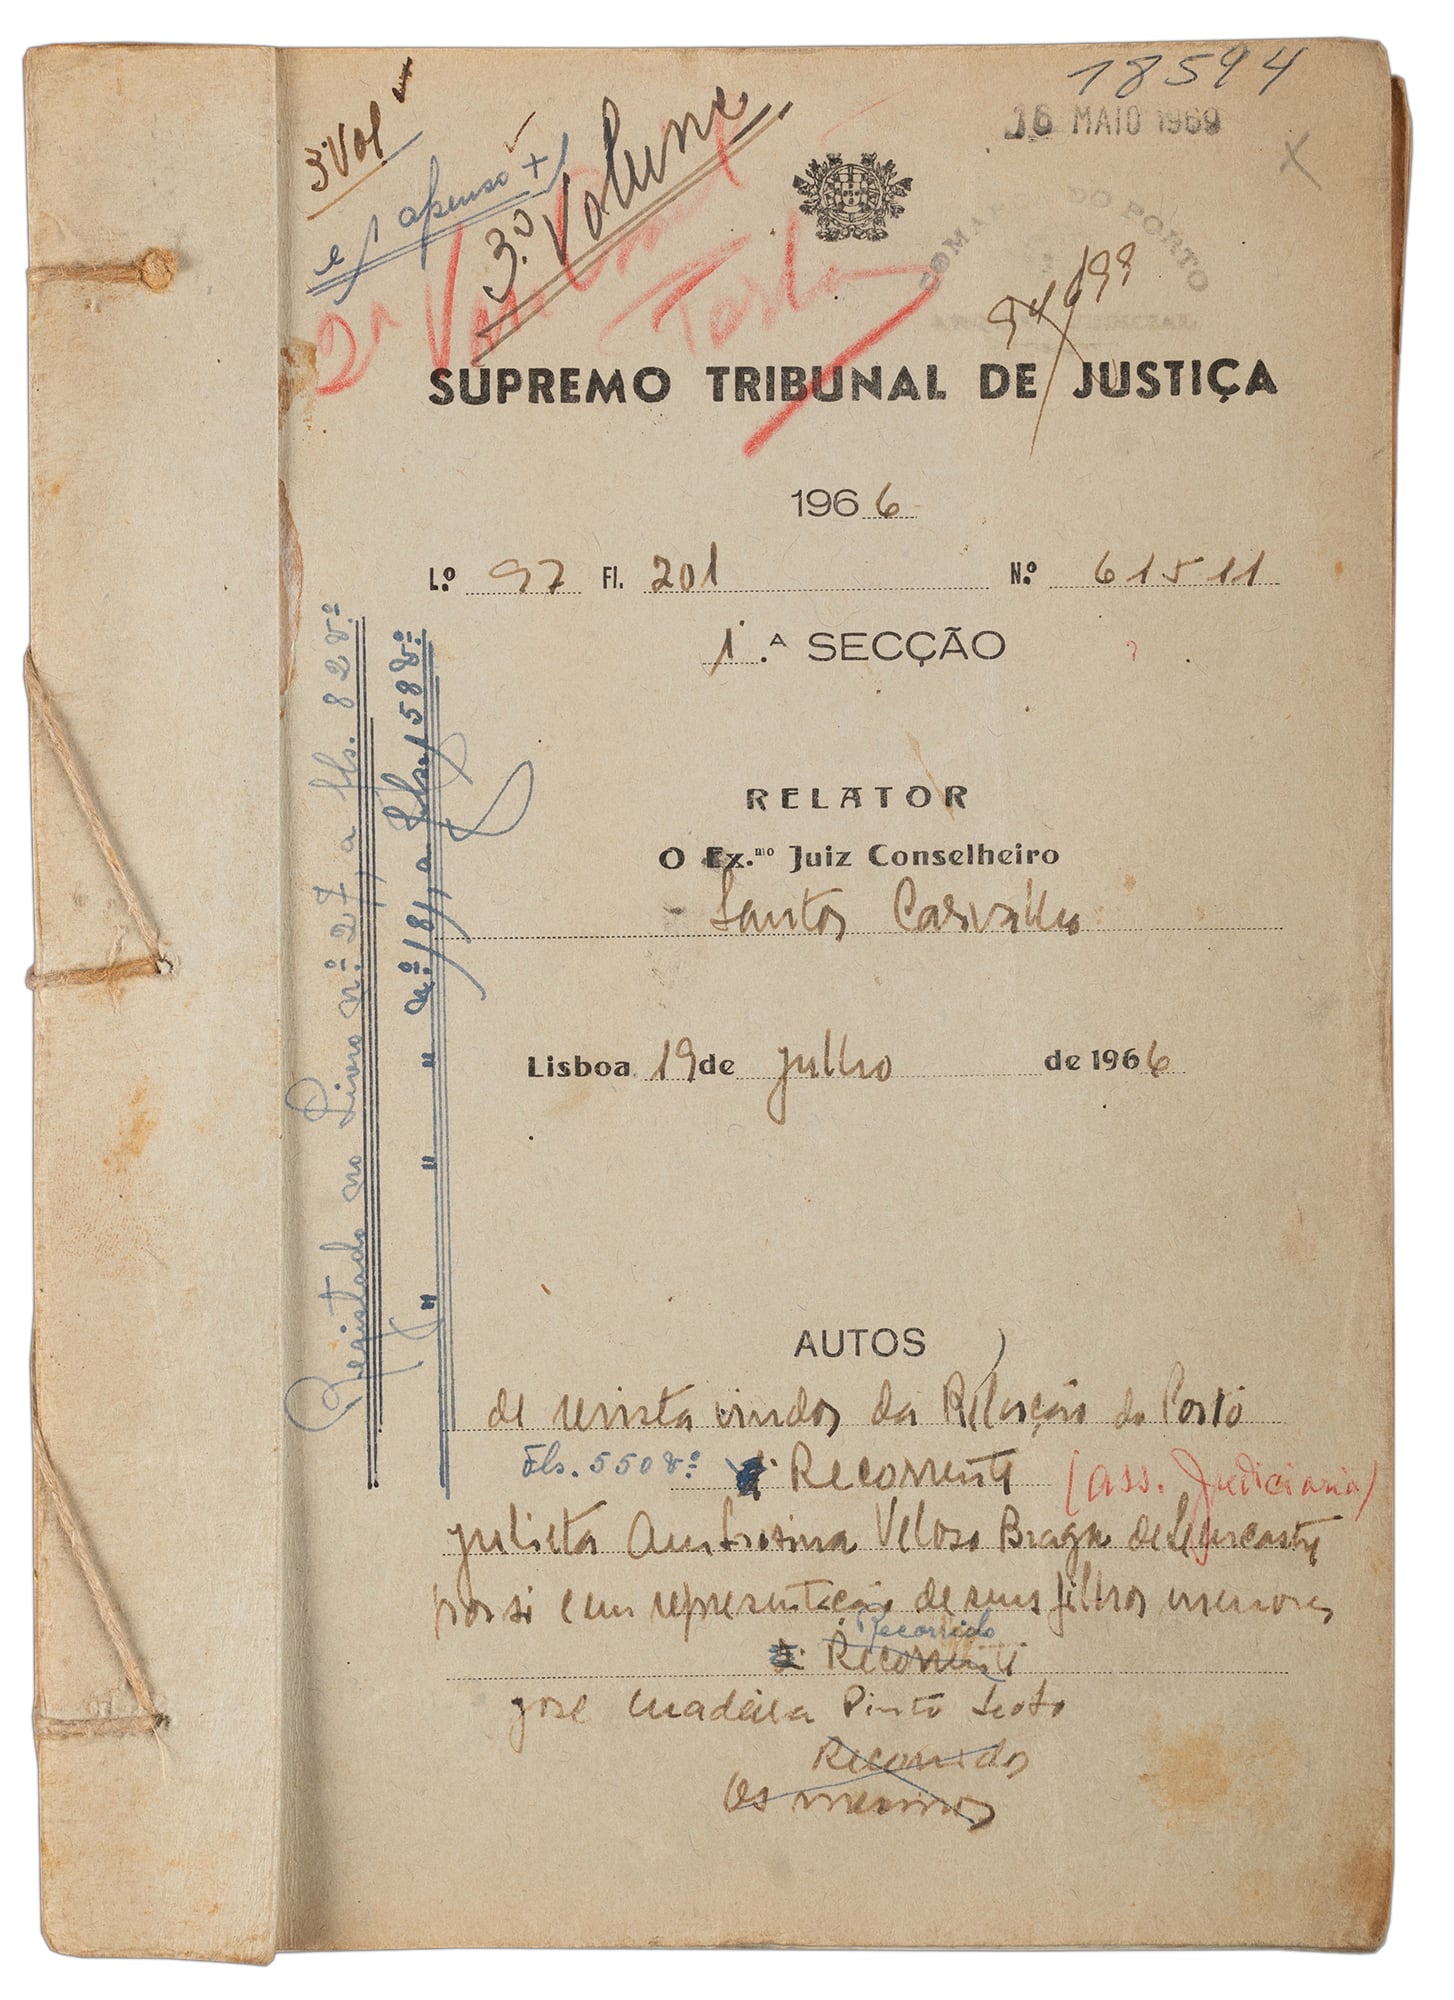 18594
16 MAIO 1969
3 Vol
e 1 apenso +
3.º Volume
COMAR DO PORTO
SUPREMO TRIBUNAL DE JUSTIÇA
1966
L.º 97 Fl. 201 N.º 61511
1.ª SECÇÃO
RELATOR
O Ex.mo Juiz Conselheiro
Santos Carvalho
Lisboa 19 de julho de 1966
Registado no Livro nº 27, a fls. 82 vº
" " " nº 18, a fls. 158 vº
AUTOS
de revista vindos da Relação do Porto
Fls. 550 vº Recorrente (Ass. Judiciaria)
Julieta Ambrosina Veloso Braga de Lencastre
por si e em representação de seus filhos menores
Recorrido
Recorrente
José Madeira Pinto
Recorridos
Os mesmos